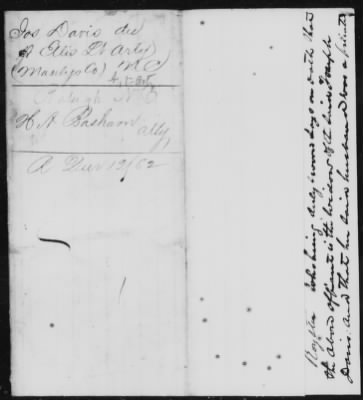 Jos Davis dec
of Ellis Lt Arty
(Manly's Co) N.C.
Raleigh N.C.
H A Basham
atty,
R Dec 12/62
who being duly sworn says on oath that
the above affiant is the widow of the said Joseph
Davis and that her said husband was a private